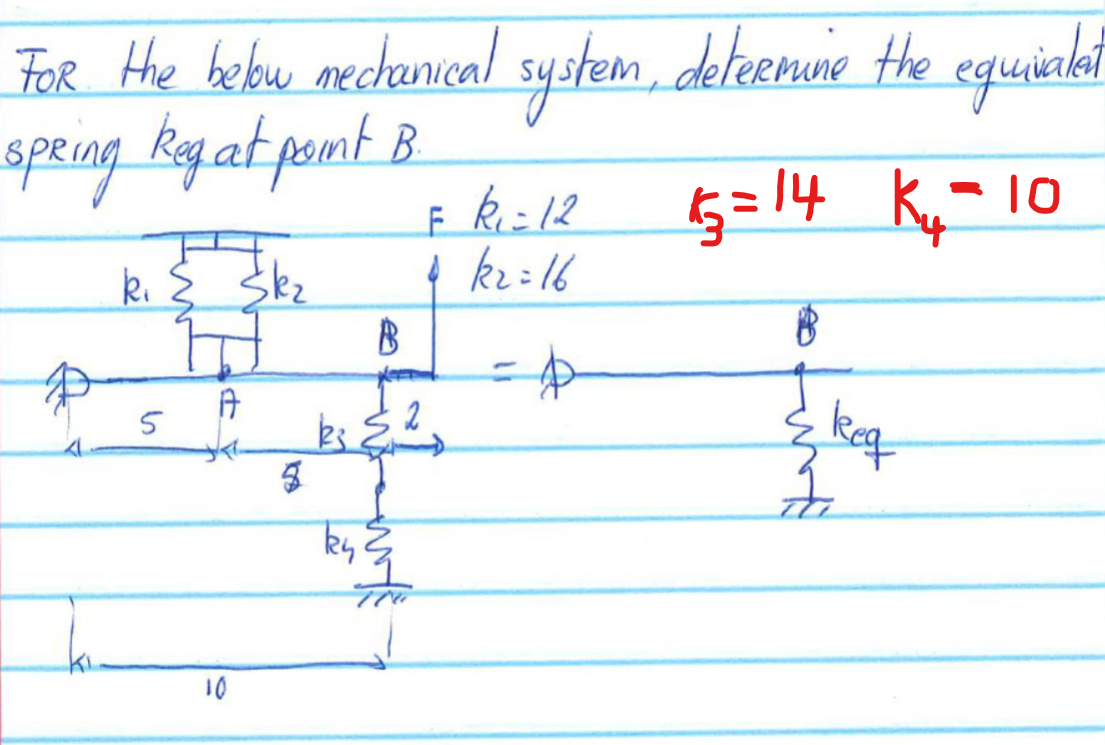 FOR the below mechanical system, determine the equivalent
spring keq at point B.
k3 = 14 k4 = 10
F k1 = 12
k2 = 16
k1 k2
B B
= 
A
5 k3 2 keq
k4
10